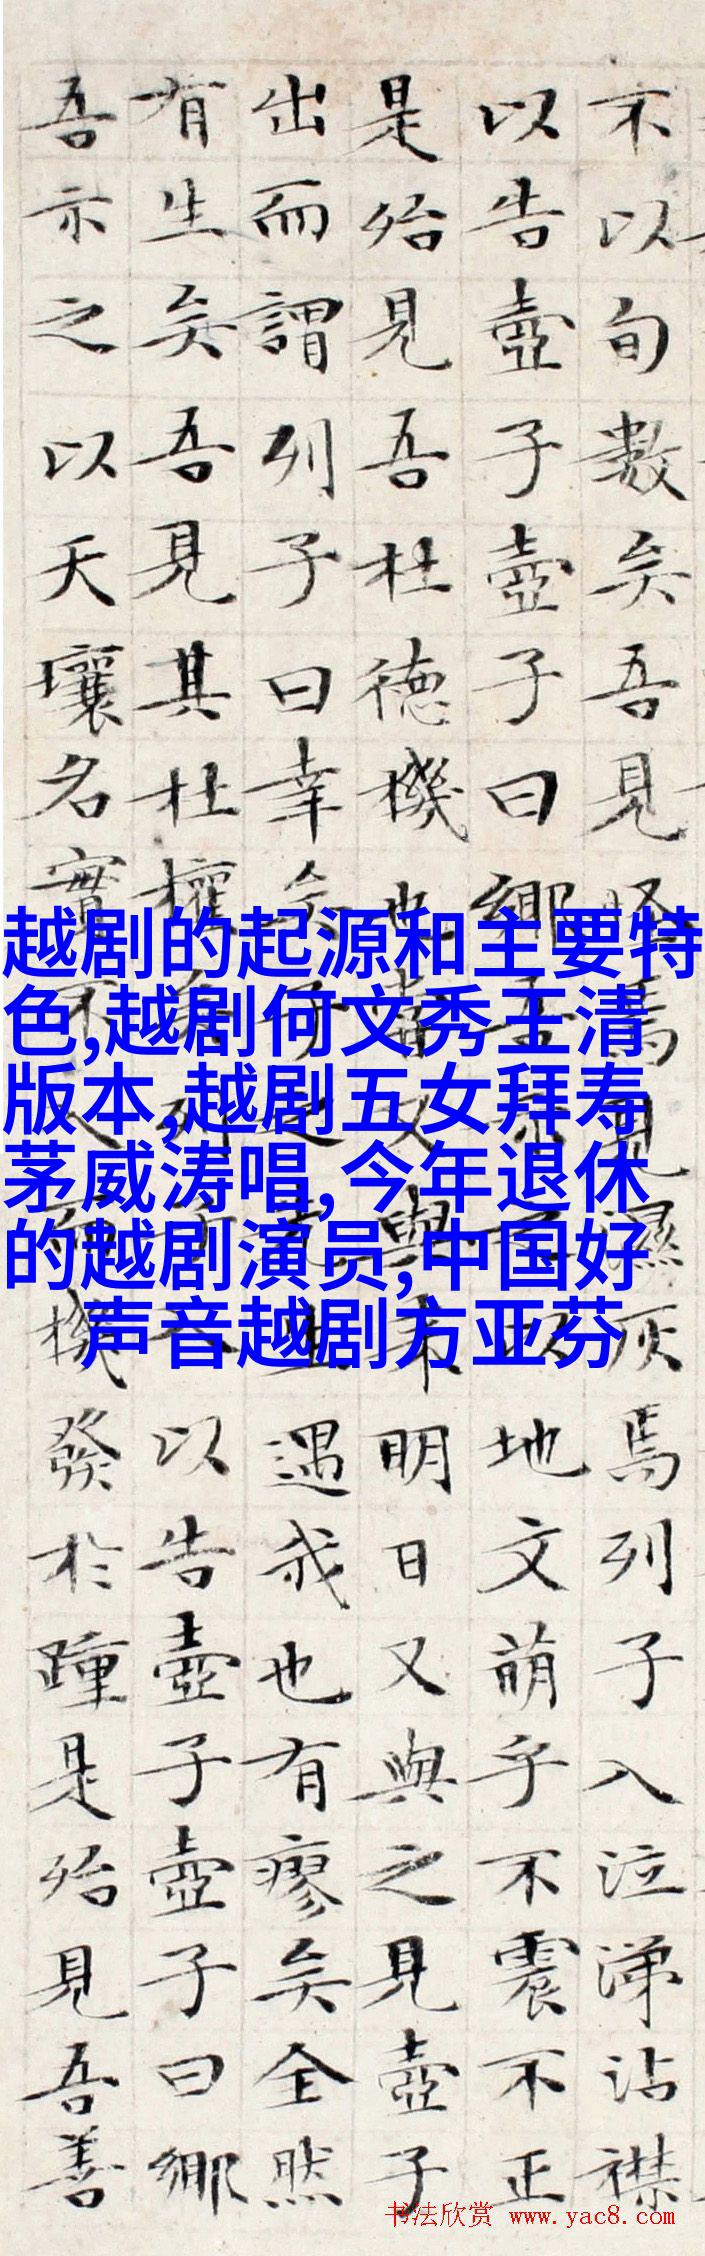 不以旬數矣吾見怪焉見濕灰焉列子入泣涕沾襟
以告壺子壺子曰鄉吾示之以地文萌乎不震不正
是殆見吾杜德機也嘗又與來明日又與之見壺子
出而謂列子曰幸矣子之先生遇我也有瘳矣全然
有生矣吾見其杜權矣列子入以告壺子壺子曰鄉
吾示之以天壤名實不入而機發於踵是殆見吾善
越剧的起源和主要特
色,越剧何文秀王清
版本,越剧五女拜寿
茅威涛唱,今年退休
的越剧演员,中国好
声音越剧方亚芬
书法欣赏 www.yac8.com